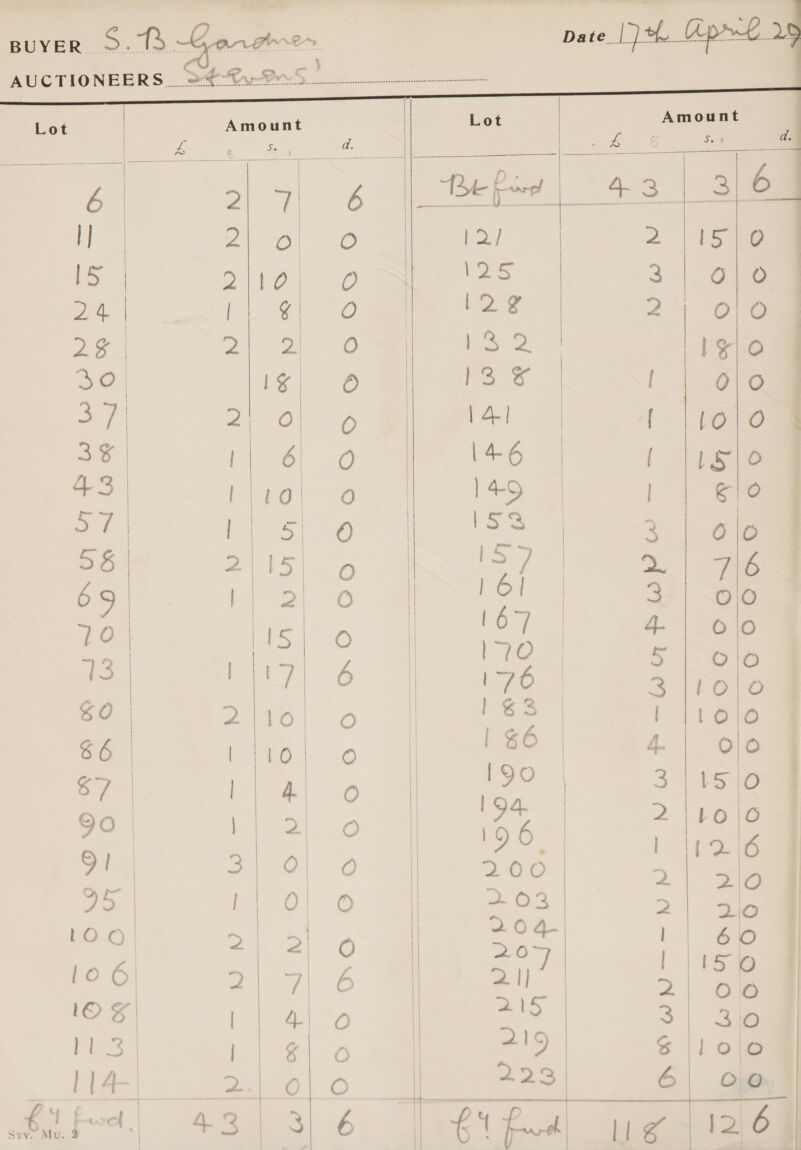 BUYER S. B. Gardner Date 17th April 29
AUCTIONEERS Stevens'
Lot Amount
£ s. d.
6 2 7 6
11 2 0 0
15 2 10 0
24 1 8 0
28 2 2 0
30 18 0
37 2 0 0
38 1 6 0
43 1 10 0
57 1 5 0
58 2 15 0
69 1 2 0
70 15 0
73 1 17 6
80 2 10 0
86 1 10 0
87 1 4 0
90 1 2 0
91 3 0 0
95 1 0 0
100 2 2 0
106 2 7 6
108 1 4 0
113 1 8 0
114 2. 0 0
fwd. 43 3 6
Srv. Mu. 3
Lot Amount
£ s. d.
Bt fwd 43 3 6
121 2 15 0
125 3 0 0
128 2 0 0
132 18 0
138 1 0 0
141 1 10 0
146 1 15 0
149 1 8 0
153 3 0 0
157 2 7 6
161 3 0 0
167 4 0 0
170 5 0 0
176 3 10 0
183 1 10 0
186 4 0 0
190 3 15 0
194 2 10 0
196 1 12 6
200 2 2 0
203 2 2 0
204 1 6 0
207 1 15 0
211 2 0 0
215 3 3 0
219 8 10 0
223 6 0 0
fwd 118 12 6